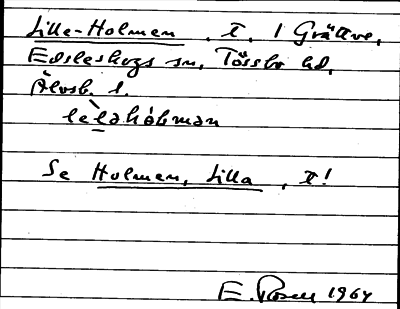 Lilla-Holmen, T. i Grättve,
Edsleskogs sn, Tössbo hd,
Älvsb. l.
Se Holmen, Lilla, T!
E. Rosell 1964